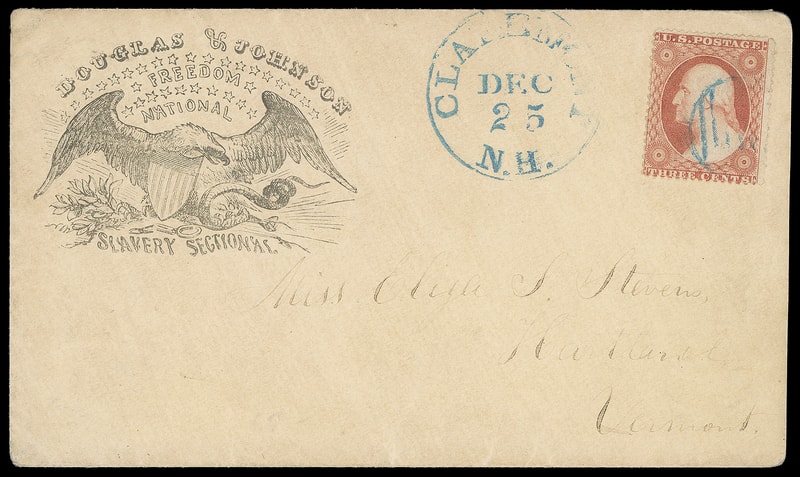 DOUGLAS & JOHNSON
FREEDOM
NATIONAL
SLAVERY SECTIONAL
CLAREMONT
DEC
25
N.H.
U.S. POSTAGE
THREE CENTS
Miss Eliza S. Stevens,
Hartland
Vermont.